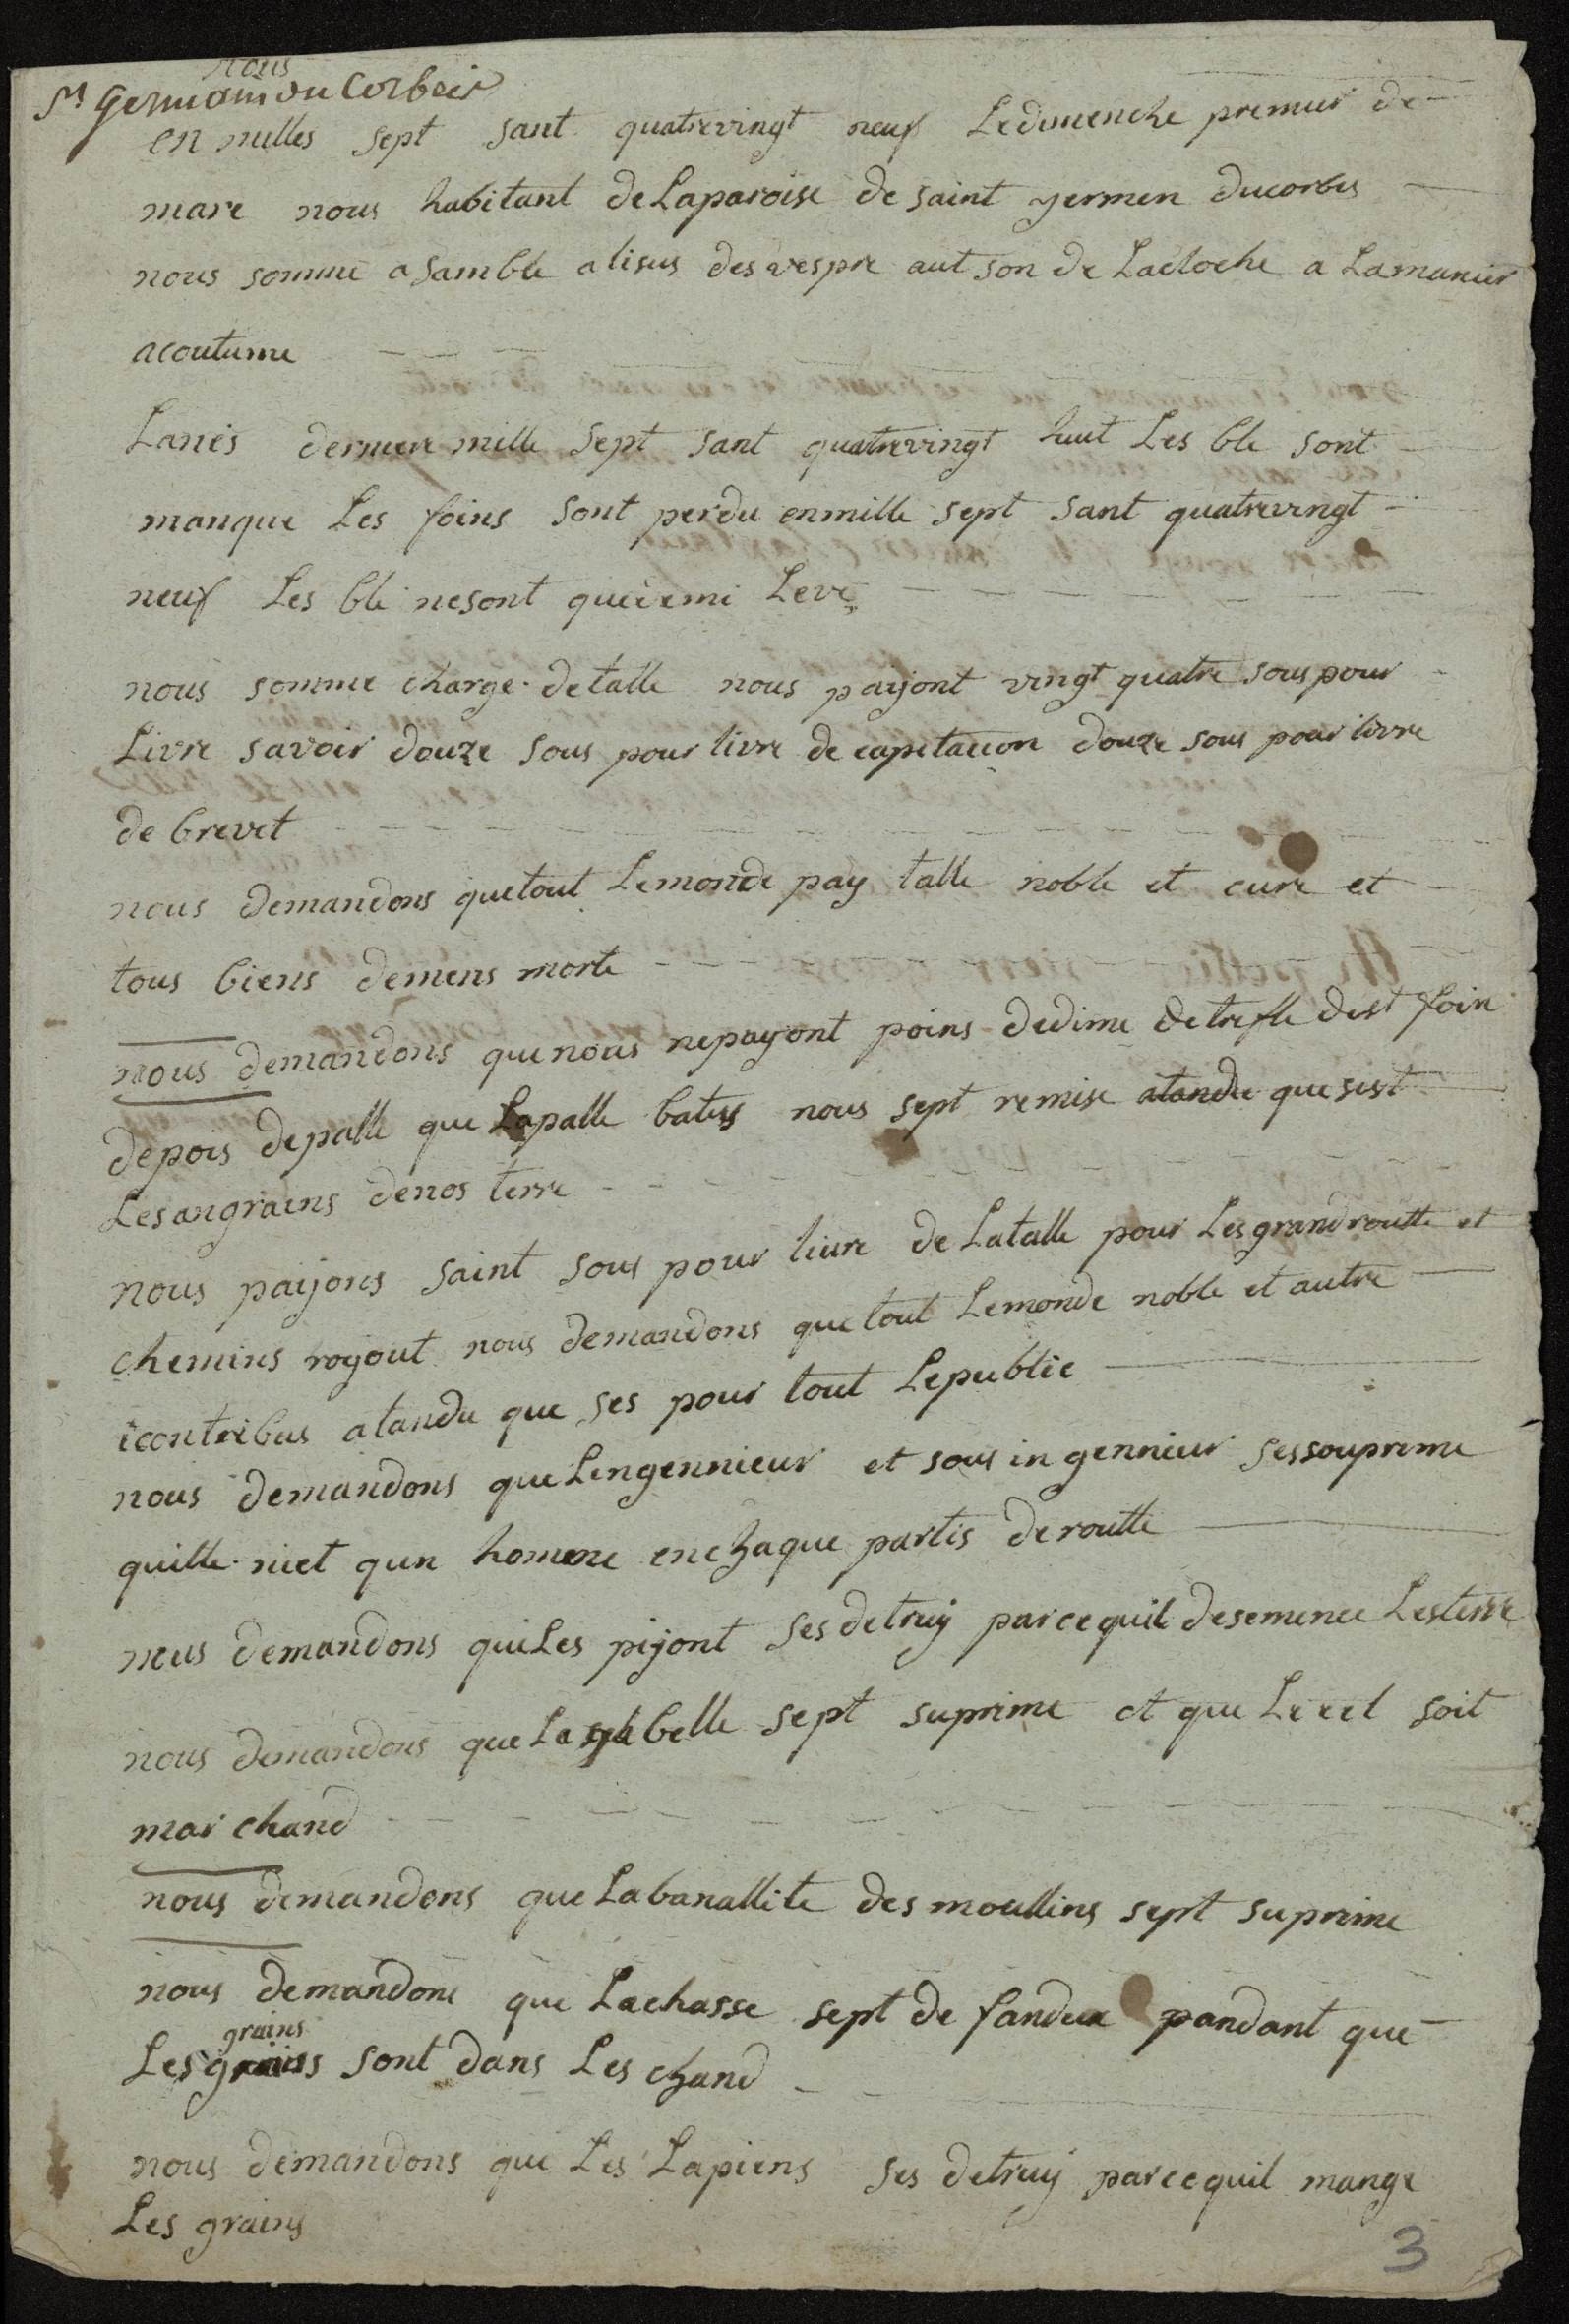 nous
St Germain du Corbeis
en milles sept sant quatrevingt neuf Ledimenche premier de
mare nous habitant deLaparoise de saint germen ducorbes
nous somme asamble alisus des vespre aut son de Lacloche a Lamanier
acoutume
Lanés dernierre mille sept sant quatrevingt huit Les ble sont
manque Les foins sont perdu enmille sept sant quatrevingt
neuf Les blé nesont que demi Levé
nous somme charge detalle nous payont vingt quatre sous pour
Livre savoir douze sous pour livre de capitacion douze sous pour livre
de brevet
nous demandons quetout Lemonde pay talle noble et cure et
tous biens demens morte
nous demandons quenous nepayont poins dedime detrefle dest foin
depois depalle que Lapalle batus nous sept remise atandu quesist
Lesangrains denos terre
nous payons saint sous pour livre de Latalle pour Lesgrandroutte et
chemins royout nous demandons quetout Lemonde noble et autre
icontribus atandu que ses pour tout Lepublic
nous demandons queLingennieur et sous in gennieur sessouprime
quille niet qun homme enchaque partis deroutte
nous demandons quiLes pijont ses detruy parcequil desemence Lesterre
nous demandons queLagabelle sept suprime et que Lecel soit
marchand
nous demandons que Labanallite des moullins sept suprime
nous demandons que Lachasse sept de fandue pandant que
grains
Lesgrains sont dans Les chand
nous demandons que Les Lapiens ses detruy parcequil mange
Les grains
3